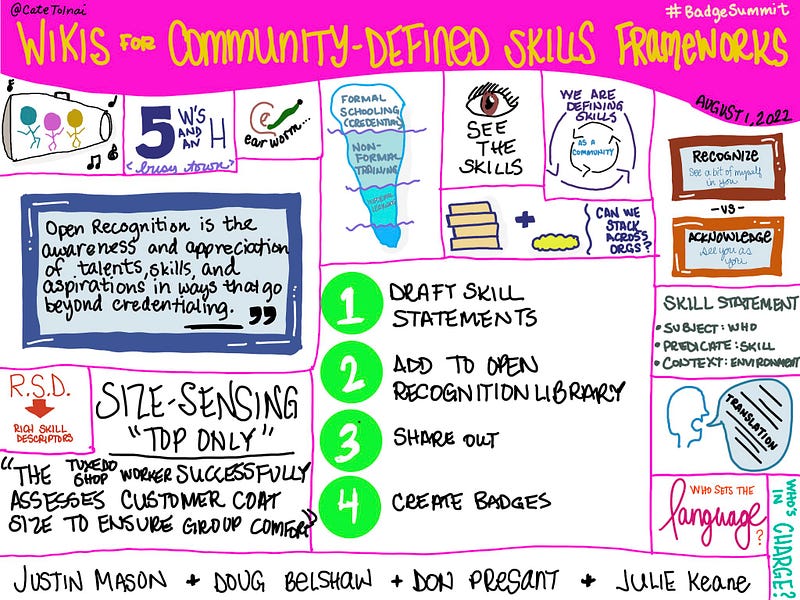 @CateTolnai
#BadgeSummit
WIKIS FOR COMMUNITY-DEFINED SKILLS FRAMEWORKS
AUGUST 1, 2022
5 W'S
AND
AN H
<busy town>
ear worm...
FORMAL
SCHOOLING
(CREDENTIAL)
NON-
FORMAL
TRAINING
SEE
THE
SKILLS
WE ARE
DEFINING
SKILLS
AS A
COMMUNITY
+
CAN WE
STACK
ACROSS
ORGS?
RECOGNIZE
See a bit of myself
in you
-VS-
ACKNOWLEDGE
see you as
you
Open Recognition is the
awareness and appreciation
of talents, skills, and
aspirations in ways that go
beyond credentialing.
”
1 DRAFT SKILL
STATEMENTS
2 ADD TO OPEN
RECOGNITION LIBRARY
3 SHARE OUT
4 CREATE BADGES
SKILL STATEMENT
• SUBJECT: WHO
• PREDICATE: SKILL
• CONTEXT: ENVIRONMENT
TRANSLATION
R.S.D.
RICH SKILL
DESCRIPTORS
SIZE-SENSING
"TOP ONLY"
"THE TUXEDO SHOP WORKER SUCCESSFULLY
ASSESSES CUSTOMER COAT
SIZE TO ENSURE GROUP COMFORT"
WHO SETS THE
language?
WHO'S
IN CHARGE?
JUSTIN MASON + DOUG BELSHAW + DON PRESANT + JULIE KEANE